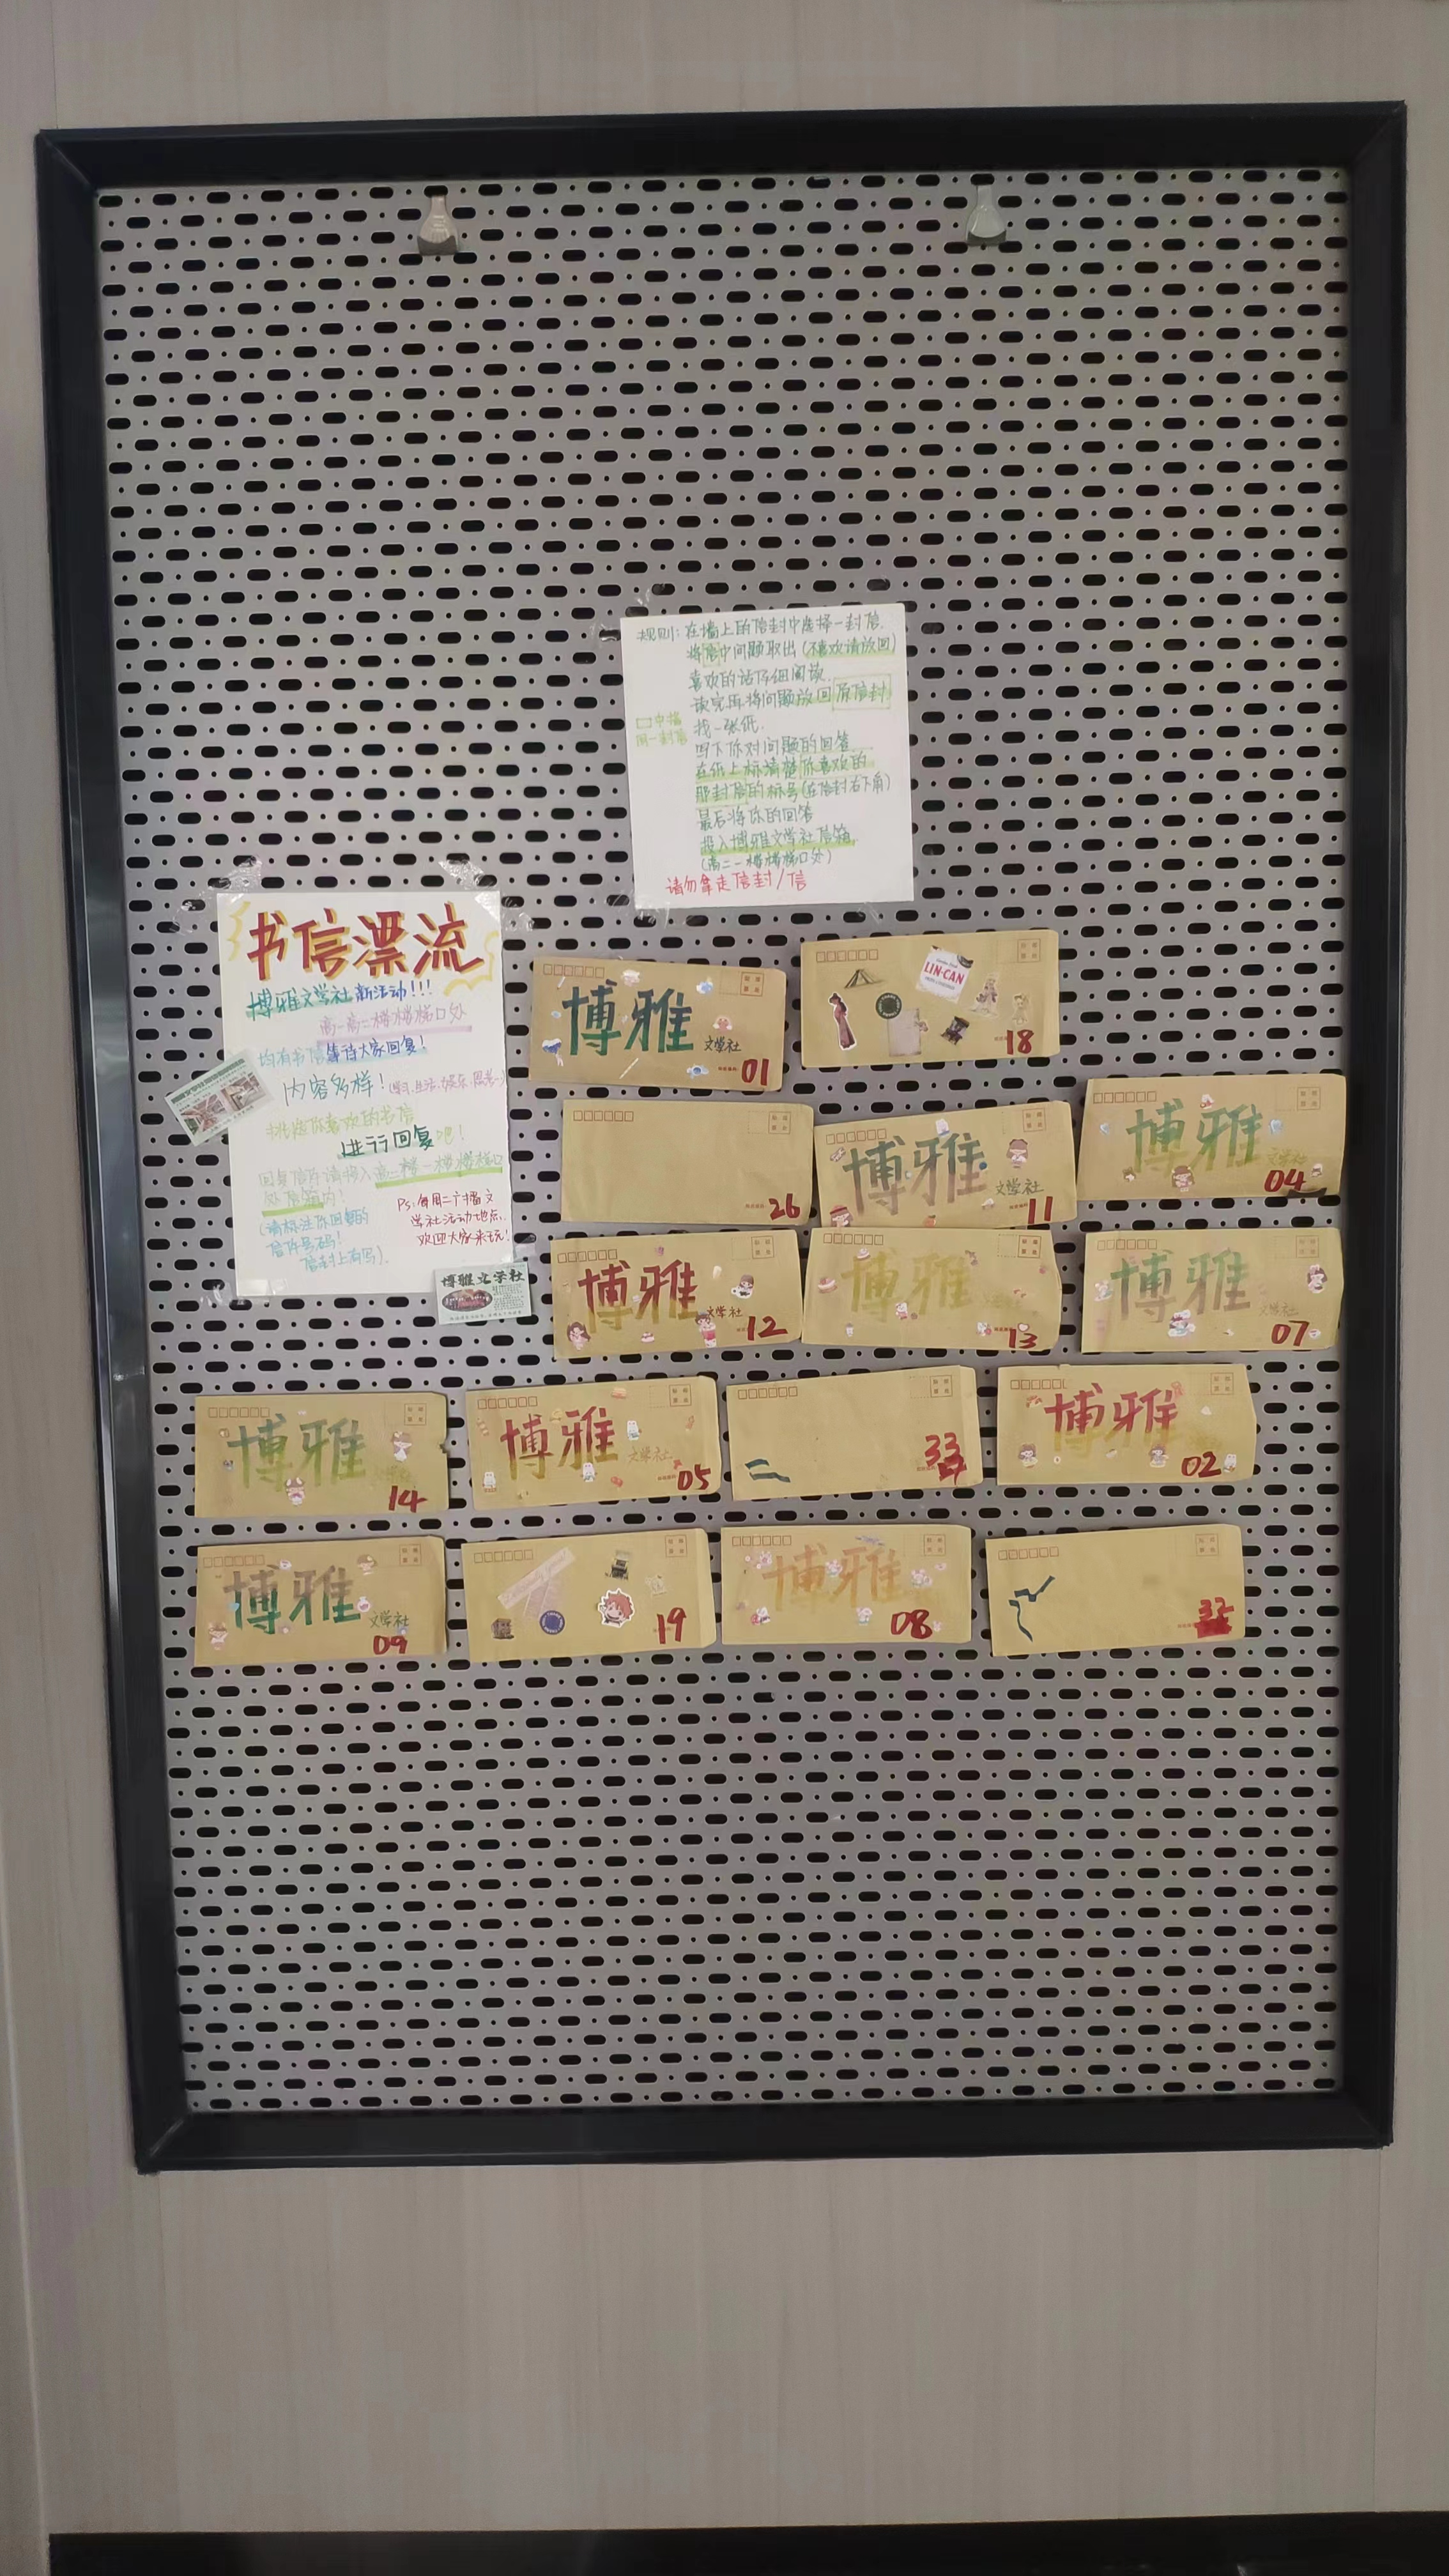 规则：在墙上的信封中选择一封信.
将信中问题取出（不喜欢请放回）
喜欢的话仔细阅读.
读完再将问题放回原信封
□中指
同一封信
找一张纸.
写下你对问题的回答
在纸上标清楚你喜欢的
那封信的标号（在信封右下角）
最后将你的回答
投入博雅文学社信箱.
（高二一楼楼梯口处）
请勿拿走信封/信
书信漂流
博雅文学社新活动!!!
高一高二楼楼梯口处
均有书信等待大家回复！
内容多样！
挑选你喜欢的书信
进行回复吧！
回复信件请投入高二楼一楼楼梯口
处信箱内！
（请标注你回复的
信件号码！
信封上有写）.
Ps：每周二广播文
学社活动地点.
欢迎大家来玩！
博雅文学社
博雅
文学社
01
LIN-CAN
18
26
博雅
文学社
11
博雅
文学社
04
博雅
文学社
12
博雅
13
博雅
文学社
07
博雅
14
博雅
文学社
05
33
博雅
02
博雅
文学社
09
19
博雅
08